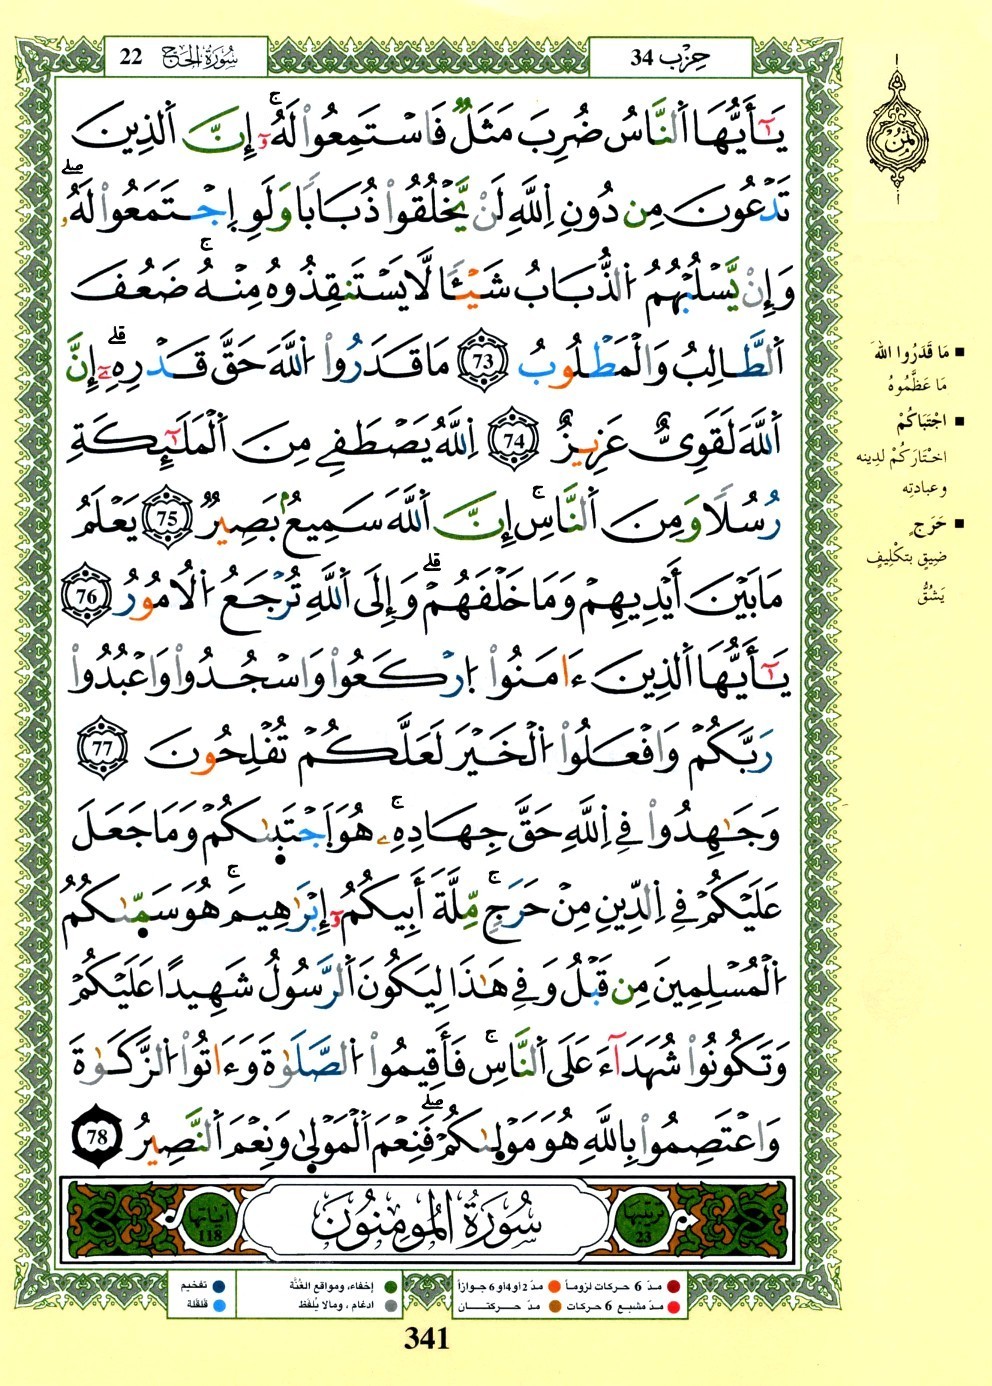 حِزْب 34
سُورَةُ الحَج 22
ثُمُن
يَٰٓأَيُّهَا اَ۬لنَّاسُ ضُرِبَ مَثَلٞ فَاسْتَمِعُواْ لَهُۥٓۚ إِنَّ اَ۬لذِينَ
تَدْعُونَ مِن دُونِ اِ۬للَّهِ لَنْ يَّخْلُقُواْ ذُبَاباٗ وَلَوِ اِ۪جْتَمَعُواْ لَهُۥۖ
وَإِنْ يَّسْلُبْهُمُ اُ۬لذُّبَابُ شَيْـٔاٗ لَّا يَسْتَنقِذُوهُ مِنْهُۚ ضَعُفَ
اَ۬لطَّالِبُ وَالْمَطْلُوبُ 73 مَا قَدَرُواْ اُ۬للَّهَ حَقَّ قَدْرِهِۦٓۗ إِنَّ
اَ۬للَّهَ لَقَوِىٌّ عَزِيزٌ 74 اِ۬للَّهُ يَصْطَفِے مِنَ اَ۬لْمَلَٰٓئِكَةِ
رُسُلاٗ وَمِنَ اَ۬لنَّاسِۚ إِنَّ اَ۬للَّهَ سَمِيعُۢ بَصِيرٞ 75 يَعْلَمُ
مَا بَيْنَ أَيْدِيهِمْ وَمَا خَلْفَهُمْۗ وَإِلَى اَ۬للَّهِ تُرْجَعُ اُ۬لُامُورُ 76
يَٰٓأَيُّهَا اَ۬لذِينَ ءَامَنُواْ اُ۪رْكَعُواْ وَاسْجُدُواْ وَاعْبُدُواْ
رَبَّكُمْ وَافْعَلُواْ اُ۬لْخَيْرَ لَعَلَّكُمْ تُفْلِحُونَ 77
وَجَٰهِدُواْ فِے اِ۬للَّهِ حَقَّ جِهَادِهِۦۚ هُوَ اَ۪جْتَبَىٰكُمْ وَمَا جَعَلَ
عَلَيْكُمْ فِے اِ۬لدِّينِ مِنْ حَرَجٖۚ مِّلَّةَ أَبِيكُمُۥٓ إِبْرَٰهِيمَۚ هُوَ سَمَّىٰكُمُ
اُ۬لْمُسْلِمِينَ مِن قَبْلُ وَفِے هَٰذَا لِيَكُونَ اَ۬لرَّسُولُ شَهِيداً عَلَيْكُمْ
وَتَكُونُواْ شُهَدَآءَ عَلَى اَ۬لنَّاسِۚ فَأَقِيمُواْ اُ۬لصَّلَوٰةَ وَءَاتُواْ اُ۬لزَّكَوٰةَ
وَاعْتَصِمُواْ بِاللَّهِ هُوَ مَوْلَىٰكُمْۖ فَنِعْمَ اَ۬لْمَوْلَىٰ وَنِعْمَ اَ۬لنَّصِيرُ 78
ترتيبها 23
سُورَةُ الْمُومِنُونَ
آيَاتها 118
■ مَا قَدَرُوا اللهَ
مَا عَظَّمُوهُ
■ اجْتَبَاكُمْ
اخْتَارَكُمْ لدِينه
وعبادتِه
■ حَرَجٍ
ضِيقٍ بتكْلِيفٍ
يَشُقُّ
مدّ 6 حركات لزوماً مدّ 2 أو 4 أو 6 جوازاً إخفاء، ومواقع الغُنَّة تفخيم
مدّ مشبع 6 حركات مدّ حركتـــان ادغام، ومالا يُلفَظ قلقلة
341